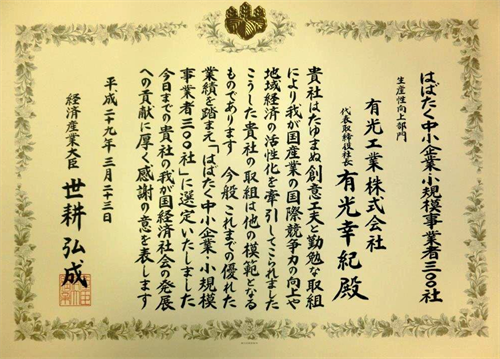 はばたく中小企業・小規模事業者三〇〇社
生産性向上部門
有光工業株式会社
代表取締役社長 有光幸紀殿
貴社はたゆまぬ創意工夫と勤勉な取組
により我が国産業の国際競争力の向上や
地域経済の活性化を牽引してこられました
こうした貴社の取組は他の模範となる
ものであります 今般 これまでの優れた
業績を踏まえ「はばたく中小企業・小規模
事業者三〇〇社」に選定いたしました
今日までの貴社の我が国経済社会の発展
への貢献に厚く感謝の意を表します
平成二十九年三月二十三日
経済産業大臣 世耕弘成